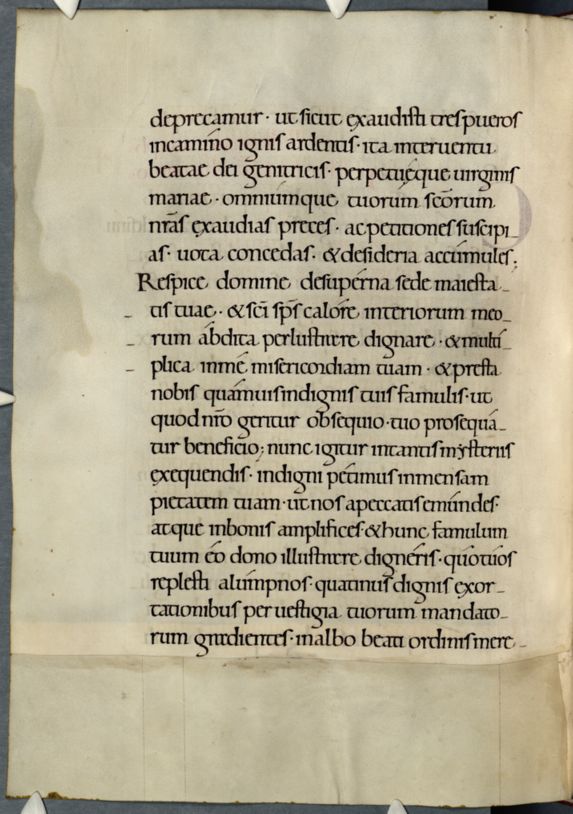 deprecamur · ut sicut exaudisti tres pueros
incamino ignis ardentis · ita interuentu
beatae dei genitricis · perpetueque uirginis
mariae · omniumque tuorum scōrum
nrās exaudias preces · ac petitiones suscipi_
as · uota concedas · & desideria accumules ;
Respice domine desuperna sede maiesta_
tis tuae · & scī sp̄s calore interiorum meo_
rum abdita perlustrare dignare · & multi_
plica inme misericordiam tuam · & presta
nobis quamuis indignis tuis famulis · ut
quod nrō geritur obsequio · tuo prosequa_
tur beneficio ; nunc igitur intantis mysteriis
exequendis · indigni petimus inmensam
pietatem tuam · ut nos apeccatis emundes ·
atque inbonis amplifices · & hunc famulum
tuum eo dono illustrare digneris · quo tuos
replesti alumpnos · quatinus dignis exor_
tationibus per uestigia tuorum mandato_
rum gradientes · inalbo beati ordinis mere_